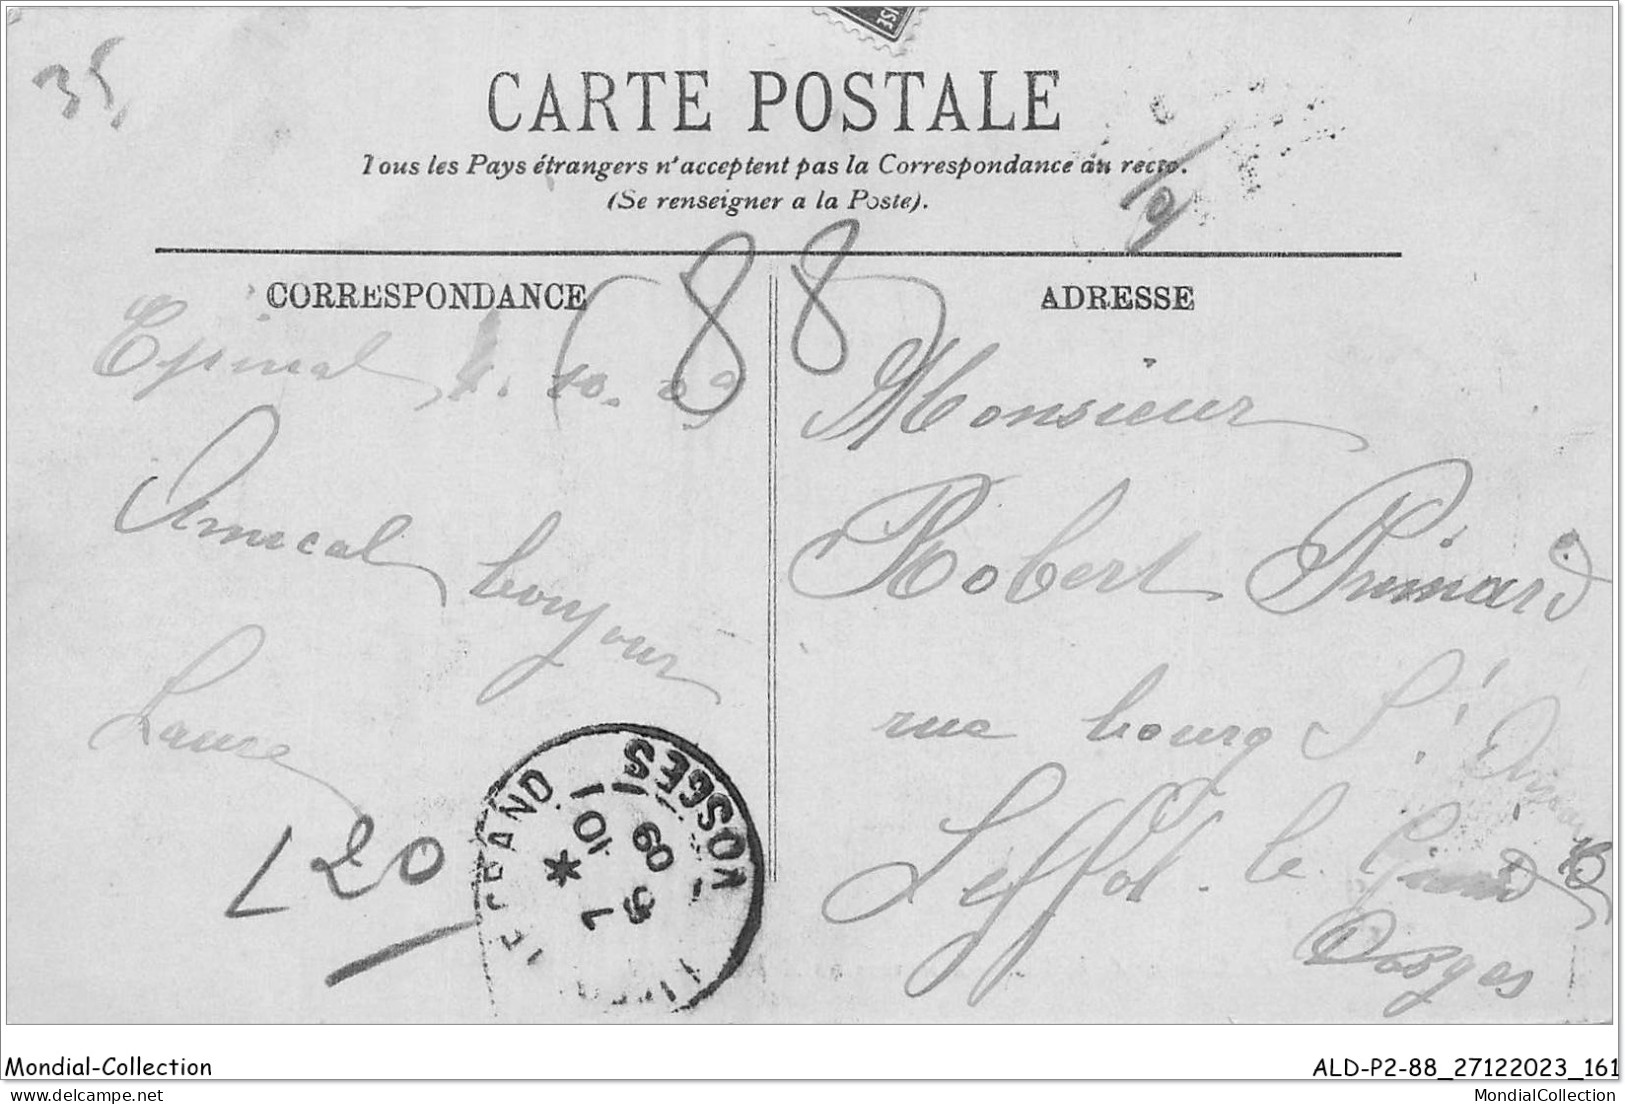 35
CARTE POSTALE
Tous les Pays étrangers n'acceptent pas la Correspondance au recto.
(Se renseigner a la Poste).
88
CORRESPONDANCE
Epinal 1. 10. 09
Amical bonjour
Laure
L20
ADRESSE
Monsieur
Robert Primard
rue bourg St.
Liffol-le-Grand
Vosges
VOSGES
LE GRAND
7
10
09
Mondial-Collection
ALD-P2-88_27122023_161
delcampe.net
MondialCollection